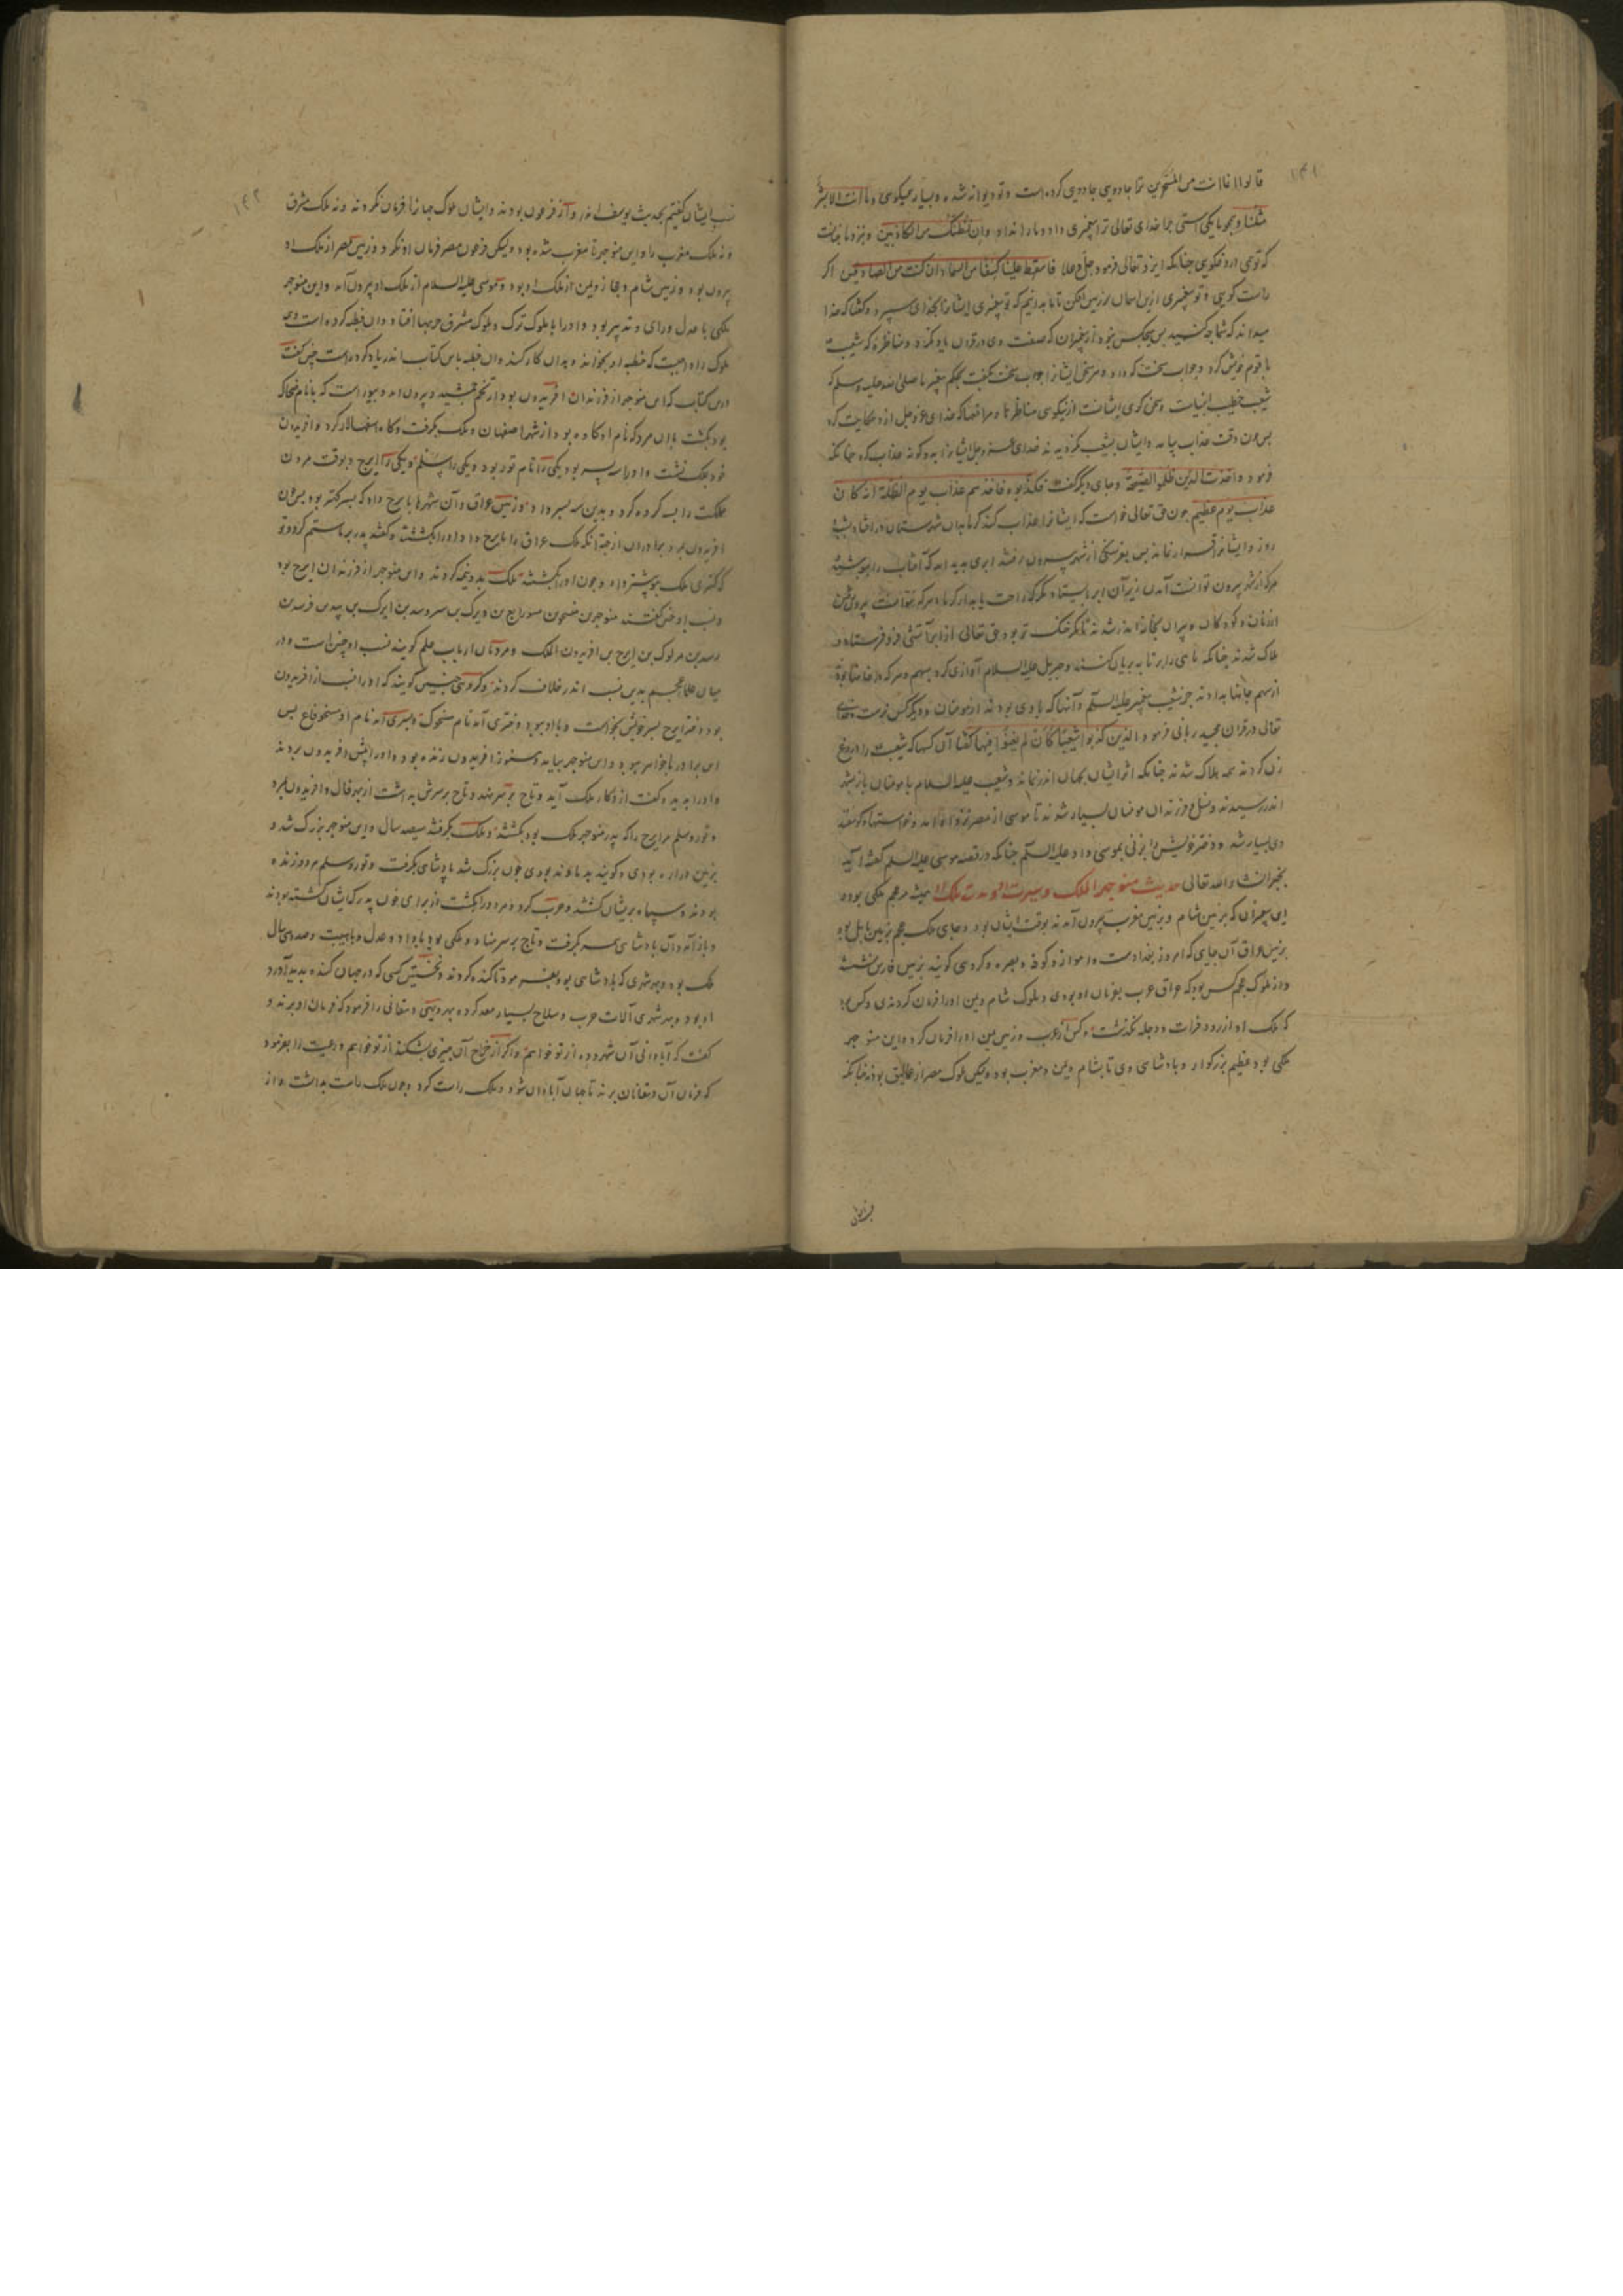 ۱۴۱
قالوا انما انت من المسحرین ترا جادویی جادویی کرده است و تو دیوانه شده و بسیار میگویی و ما انت الا بشر
مثلنا و همچو ما یکی استی چرا خدای تعالی ترا پیغمبری داد و ما را نداد و ان نظنک من الکاذبین و نزد ما چنانست
که تویی دروغگویی چنانکه ایزد تعالی فرمود جل و علا فاسقط علینا کسفا من السماء ان کنت من الصادقین اگر
راست گویی و تو پیغمبری ازین آسمان بر زمین افکن تا ما بدانیم که تو پیغمبری ایشانرا بخدای سپرد و گفتا که خدا
میداند که شما چه کنید پس هیچکس نبود از پیغمبران که صفت وی در قران یاد کند و مناظره که شعیب
با قوم خویش کرد و جواب سخت که داد و هر سخنی ایشانرا جواب سخت بگفت بحکم پیغمبر ما صلی الله علیه وسلم که
شعیب خطیب انبیاست و سخن گوی ایشانست از نیکویی مناظرتها و مراقعها که خدای عز و جل ازو حکایت کرد
پس چون وقت عذاب بیامد و ایشان بشعیب نگرویدند خدای عز و جل ایشانرا بدو گونه عذاب کرد چنانکه
فرمود و اخذت الذین ظلموا الصیحة و جای دیگر گفت فکذبوه فاخذهم عذاب یوم الظلة انه کان
عذاب یوم عظیم چون حق تعالی خواست که ایشانرا عذاب کند گرما بدان شهرستان در افتاد
روز و ایشانرا قرار نماند پس یفرسنگی از شهر بیرون رفتند ابری پدید آمد که آفتاب را بپوشید
هرکه از شهر بیرون توانست آمدن زیر آن ابر بایستاد مگر که راحت یابد از گرما و هرکه نتوانست بیرون شدن
از زنان و کودکان و پیران بخانه اندر شدند تا مگر خنک تر بود حق تعالی از ابر آتشی فرو فرستاد و
هلاک شدند چنانکه ماهی را بر تابه بریان کنند و جبریل علیه السلام آوازی کرد بسهم و هرکه در خانها بود
از سهم جانها بدادند جز شعیب پیغمبر علیه السلام و آنها که با وی بودند از مومنان و دیگر کس نرست و خدای
تعالی در قران مجید ربانی فرمود الذین کذبوا شعیبا کان لم یغنوا فیها گفتا آن کسها که شعیب را دروغ
زن کردند همه هلاک شدند چنانکه اثر ایشان بجهان اندر نماند و شعیب علیه السلام با مومنان باز شهر
اندر رسیدند و نسل و فرزندان مومنان بسیار شدند تا موسی از مصر نزد او آمد و خواستها و گوسفند
وی بسیار شد و دختر خویش را بزنی بموسی داد علیه السلام چنانکه در قصه موسی علیه السلم گفته آید
بخیر انشاء الله تعالی حدیث منوچهر الملک و سیرت او و مدت ملک او حدیث در عجم ملکی بود و
این پیغمبران که بزمین شام و بزمین مغرب بیرون آمدند بوقت ایشان بود و جای ملک عجم بزمین بابل بود
بزمین عراق آن جای که امروز بغدادست و اهواز و کوفه و بصره و گروهی گویند بزمین فارس نشست
و از ملوک عجم کس بود که عراق عرب بفرمان او بودی و ملوک شام و یمن او را فرمان کردندی و کس
که ملک او از رود فرات و دجله نگذشت و کس از عرب و زمین یمن او را فرمان کرد و این منوچهر
ملکی بود عظیم بزرگوار و پادشاهی وی تا بشام و یمن و مغرب بود و لیکن ملوک مصر از عمالیق بودند چنانکه
۱۴۲
نسب ایشان گفتیم بحدیث یوسف اندر و آن فرعون بودند و ایشان ملوک جهانرا فرمان نکردند و نه ملک مشرق
و نه ملک مغرب را و این منوچهر تا مغرب شده بود و لیکن فرعون مصر فرمان او نکرد و زمین مصر از ملک او
بیرون بود و زمین شام و حجاز و یمن از ملک او بود و موسی علیه السلام از ملک او بیرون آمد و این منوچهر
ملکی با عدل و رای و تدبیر بود و او را با ملوک ترک و ملوک مشرق حربها افتاد و آن خطبه کرده است وی
ملوک را واجبست که خطبه او بخوانند و بدان کار کنند و آن خطبه باین کتاب اندر یاد کرده است چنین گفت
درین کتاب که این منوچهر از فرزندان افریدون بود از تخم جمشید و بیرون آمد و بیوراست که با نام ضحاک
بود بکشت با آن مرد که نام او کاوه بود از شهر اصفهان و ملک بگرفت و کاوه اسفهسالار کرد و افریدون
خود بملک نشست و او را سه پسر بود یکی را نام تور بود و یکی را سلم و یکی را ایرج و بوقت مردن
مملکت را بسه کرده کرد و بدین سه پسر داد و زمین عراق و آن شهرها بایرج داد که پسر کهتر بود پس چون
افریدون بمرد برادران از جهة آنکه ملک عراق را بایرج داد او را بکشتند و گفتند پدر بر ما ستم کرد و تو
که کهتری ملک بیشتر داد و چون او را بکشتند ملک بدو نیمه کردند و این منوچهر از فرزندان ایرج بود
و نسب او چنین گفتند منوچهر بن
بن ایرج بن افریدون الملک و مردمان ارباب علم گویند نسب او چنین است و در
میان علماء عجم بدین نسب اندر خلاف کردند و گروهی چنین گویند که او را نسب از افریدون
بود و دختر ایرج پسر خویش بخواست و با او ببود و دختری آمد نام
این برادر با خواهر ببود و این منوچهر بیامد و هنوز افریدون زنده بود و او را پیش افریدون بردند
و او را بدید و گفت از تو کار ملک آید و تاج بر سر نهد و تاج بر سرش بداشت از بهر فال و افریدون بمرد
و تور و سلم مر ایرج را که پدر منوچهر ملک بود بکشتند و ملک بگرفتند سیصد سال و این منوچهر بزرگ شد و
بزمین بودی و گویند بدماوند بودی چون بزرگ شد پادشاهی بگرفت و تور و سلم هر دو زنده
بودند و سپاه بریشان کشید و حرب کرد و هر دو را بکشت از برای خون پدر که ایشان کشته بودند
و باز آمد و آن پادشاهی همه بگرفت و تاج بر سر نهاد و ملکی بود با داد و عدل و با هیبت و صد و بیست سال
ملک بود و بهر شهری که پادشاهی بود بفرمود تا کنده کردند و نخستین کسی که در جهان کنده پدید آورد
او بود و بهر شهری آلات حرب و سلاح بسیار معد کرد و بهر دیهی دهقانی را فرمود که فرمان او برند و
گفت که آبادانی آن شهر و ده از تو خواهم و اگر از خراج آن چیزی بشکند از تو خواهم و رعیت را بفرمود
که فرمان آن دهقانان برند تا جهان آبادان شود و ملک راست کرد و چون ملک راست بداشت و از